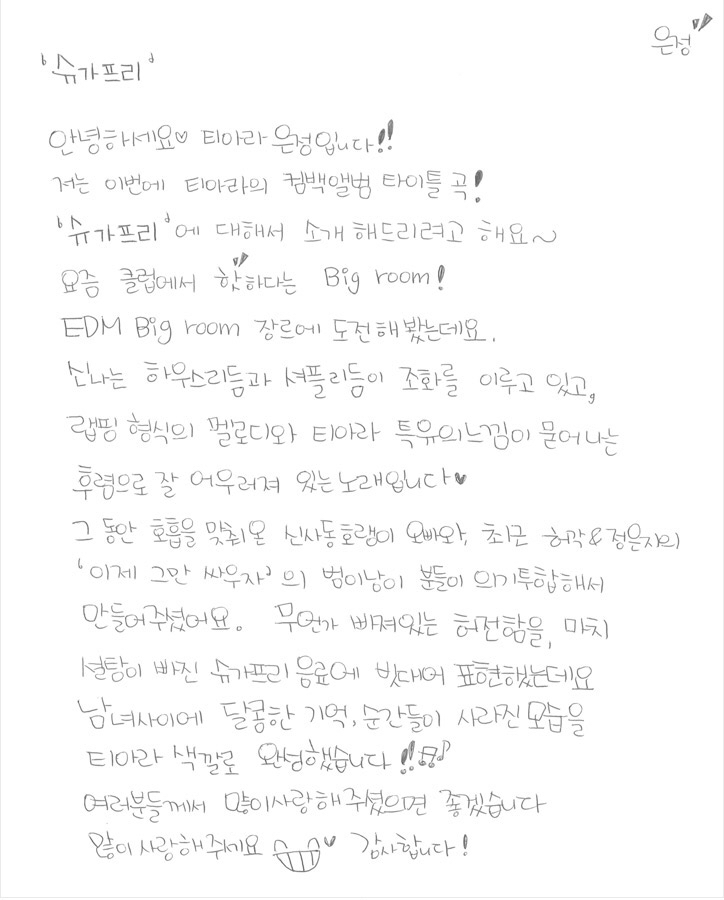 은정
'슈가프리'
안녕하세요♡ 티아라 은정입니다!!
저는 이번에 티아라의 컴백앨범 타이틀 곡!
'슈가프리'에 대해서 소개 해드리려고 해요~
요즘 클럽에서 핫하다는 Big room!
EDM Big room 장르에 도전해봤는데요.
신나는 하우스리듬과 셔플리듬이 조화를 이루고 있고,
랩핑 형식의 멜로디와 티아라 특유의느낌이 묻어나는
후렴으로 잘 어우러져 있는노래입니다♥
그 동안 호흡을 맞춰온 신사동호랭이 오빠와, 최근 허각&정은지의
'이제 그만 싸우자'의 범이낭이 분들이 의기투합해서
만들어주셨어요. 무언가 빠져있는 허전함을, 마치
설탕이 빠진 슈가프리 음료에 빗대어 표현했는데요
남녀사이에 달콩한 기억,순간들이 사라진 모습을
티아라 색깔로 완성했습니다!!♫♪
여러분들께서 많이사랑해주셨으면 좋겠습니다
많이사랑해주세요 ♥ 감사합니다!